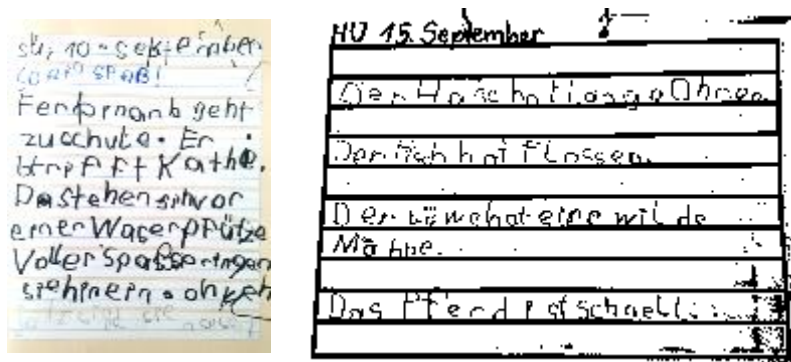 sü, 10. September
WAR SPAß!
Ferdornand geht
zuschule. Er
trifft Kathe.
Da stehen sihvor
einer Waserpfütze
Voller Spaß springen
siehinein. oh
HÜ 15. September
Der Hase hat lange Ohren.
Der Fisch hat Flossen.
Der Löwe hat eine wilde
Mähne.
Das Pferd ist schnell.